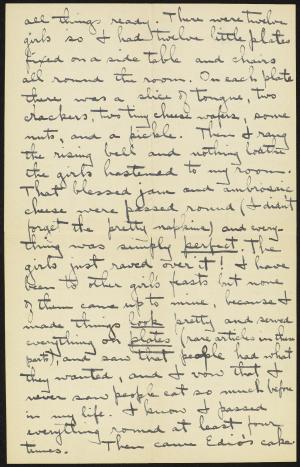 all things ready. There were twelve
girls so I had twelve little plates
fixed on a side table and chairs
all round the room. On each plate
there was a slice of tongue, two
crackers, two tiny cheese wafers, some
nuts, and a pickle. Then I rang
the rising bell and nothing loath
the girls hastened to my room.
That blessed jam and ambrosial
cheese were passed round (I didn't
forget the pretty napkins) and every-
thing was simply perfect. The
girls just raved over it! I have
been to other girls feasts but none
of them came up to mine, because I
made things look pretty and served
everything on plates (rare articles in these
parts), and saw that people had what
they wanted, and I vow that I
never saw people eat so much before
in my life. I know I passed
everything round at least four
times. Then came Edie's cake